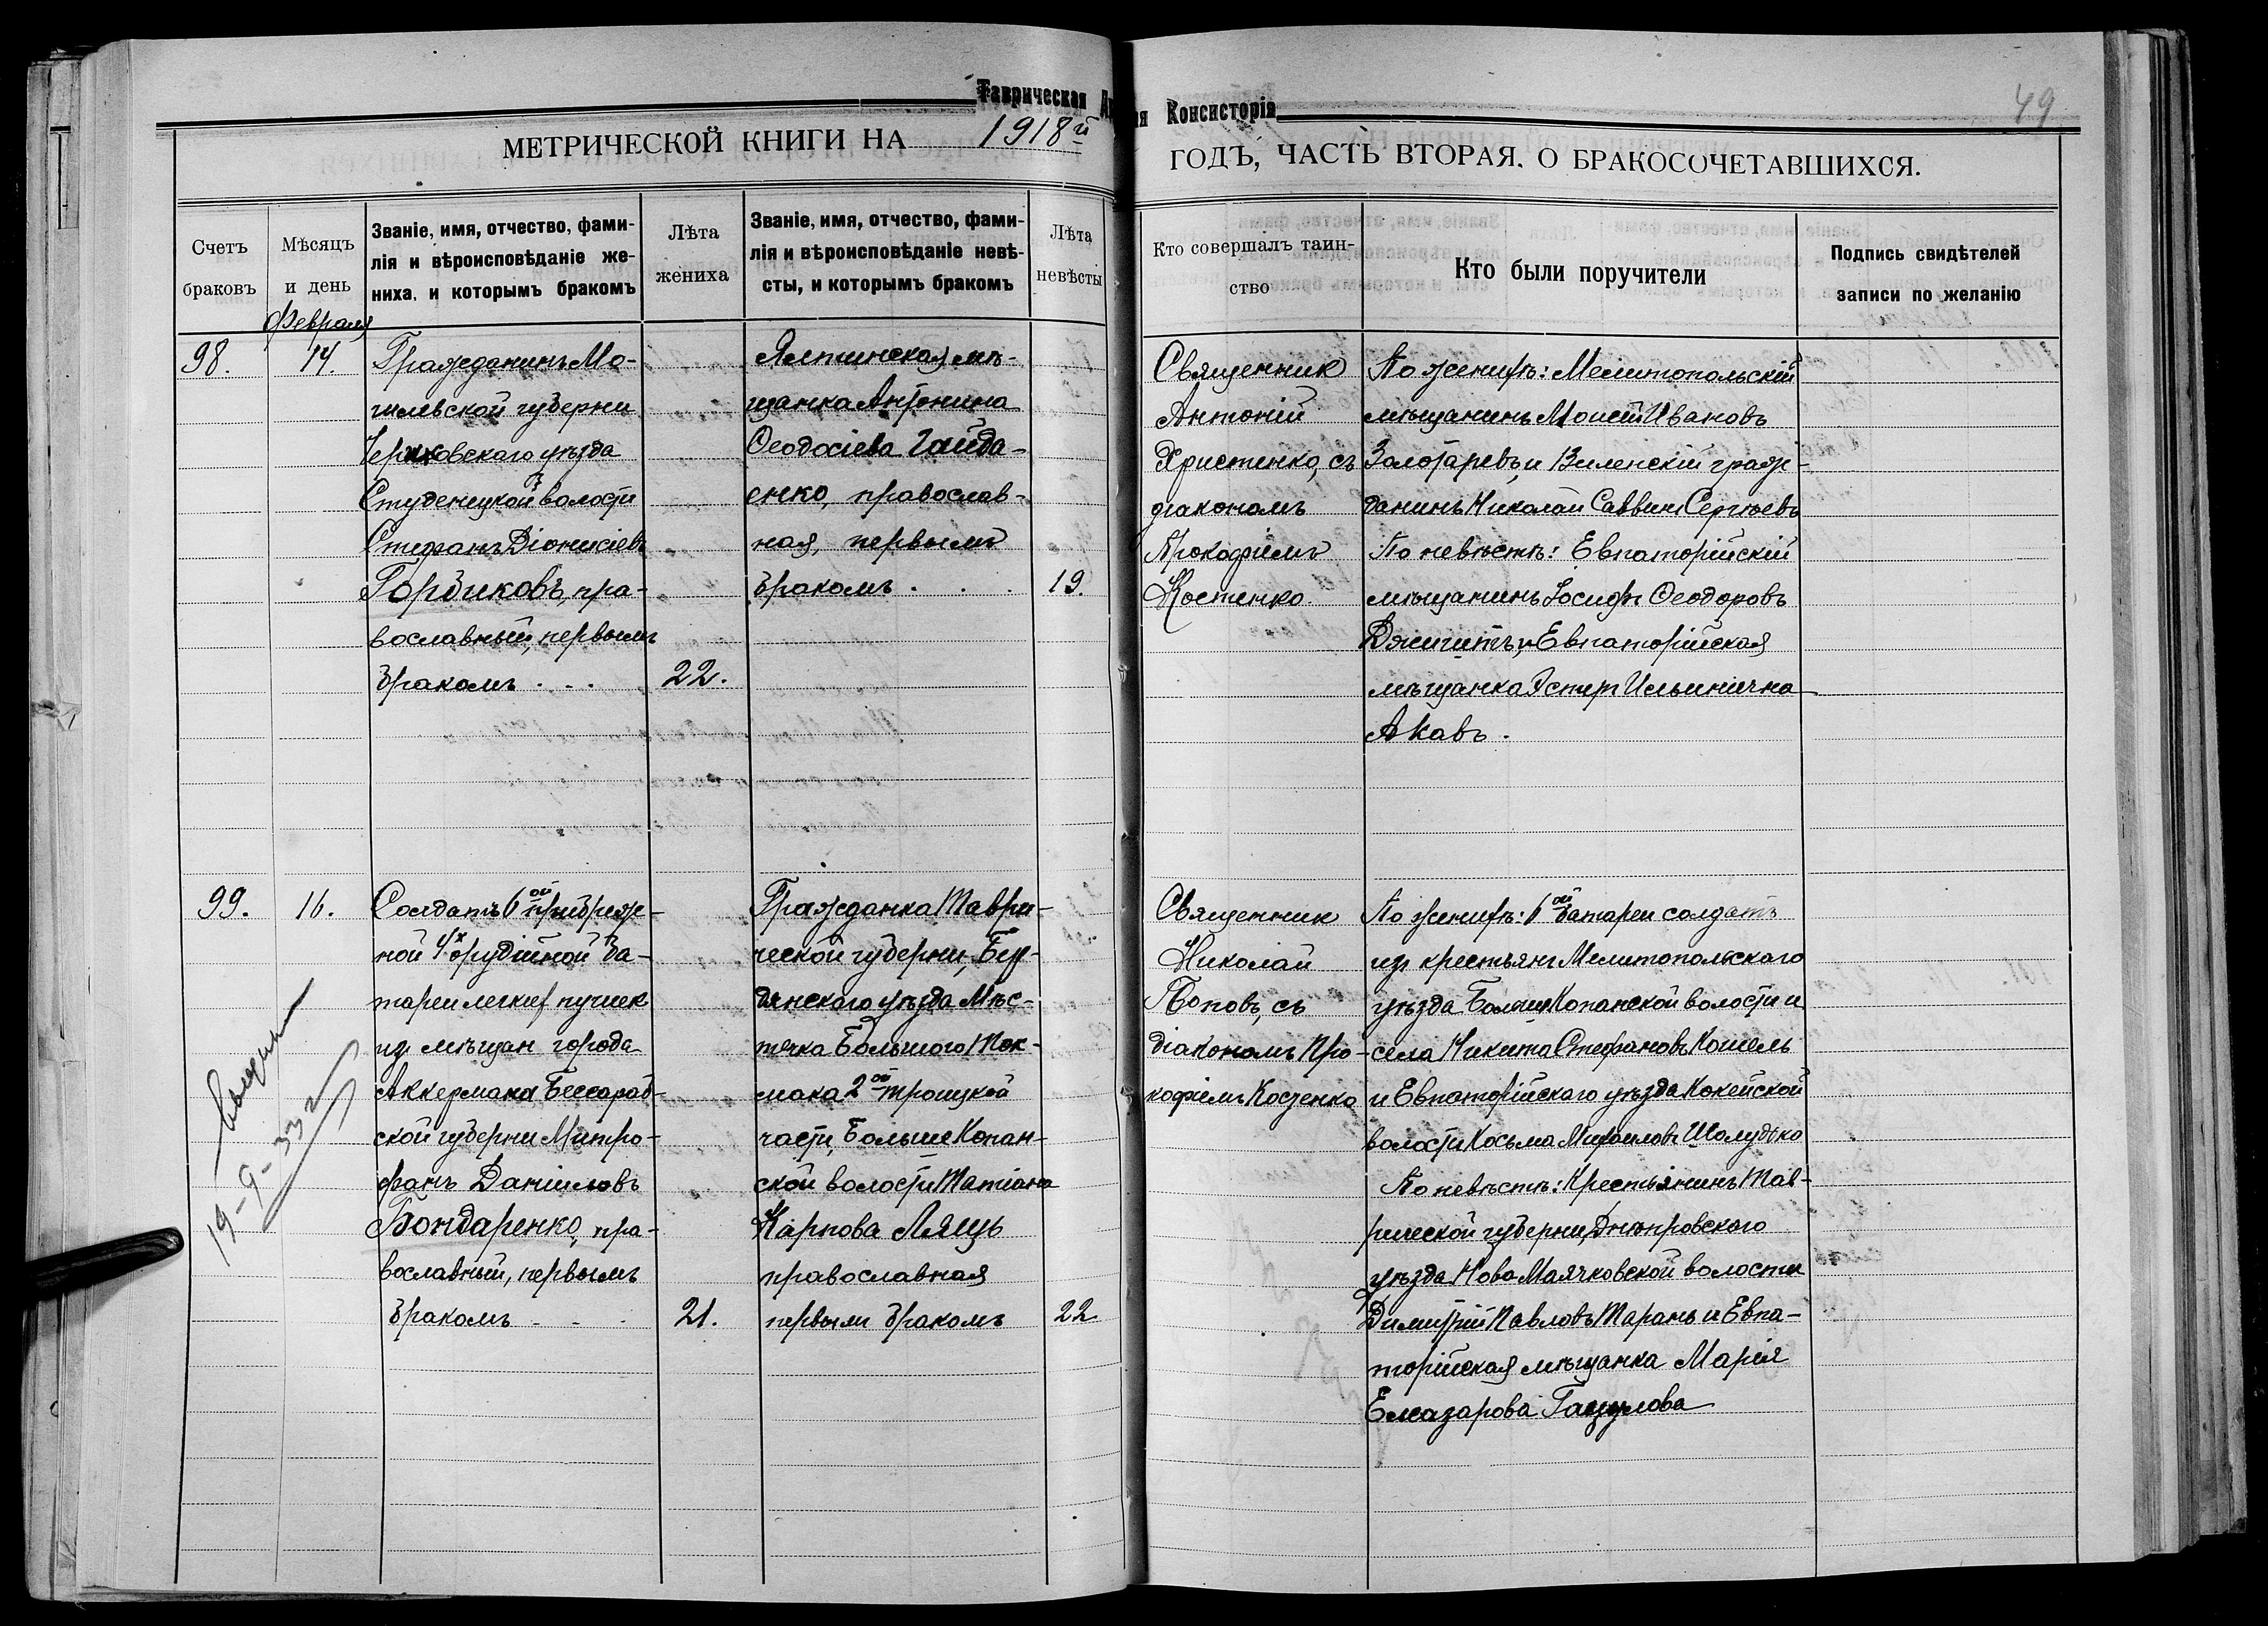 Таврическая
Консисторія
49
МЕТРИЧЕСКОЙ КНИГИ НА 1918й
ГОДЪ, ЧАСТЬ ВТОРАЯ. О БРАКОСОЧЕТАВШИХСЯ.
Счетъ
браковъ
Мѣсяцъ
и день
Званіе, имя, отчество, фами-
лія и вѣроисповѣданіе же-
ниха, и которымъ бракомъ
Лѣта
жениха
Званіе, имя, отчество, фами-
лія и вѣроисповѣданіе невѣ-
сты, и которымъ бракомъ
Лѣта
невѣсты
Кто совершалъ таин-
ство
Кто были поручители
Подпись свидѣтелей
записи по желанію
Февраля
98.
14.
Гражданинъ Мо-
гилевской губерни
Чериковскаго уѣзда
Студенецкой волости
Стефанъ Діонисіевъ
Горбиковъ, пра-
вославный, первымъ
бракомъ . . .
22.
Ялтинская мѣ-
щанка Антонина
Ѳеодосіева Гайда-
енко, православ-
ная, первымъ
бракомъ . . .
19.
Священник
Антоній
Христенко, съ
діакономъ
Прокофіемъ
Костенко.
По женихѣ: Мелитопольскій
мѣщанинъ Моисей Ивановъ
Золотаревъ, и Виленскій граж-
данинъ Николай Саввинъ Сергѣевъ
По невѣстѣ: Евпаторійскій
мѣщанинъ Іосифъ Ѳеодоровъ
Джигитъ, и Евпаторійская
мѣщанка Эстер Ильинична
Акавъ.
99.
16.
Солдатъ 6ой прибреж-
ной 4х орудійной ба-
тареи легких пушек
из мѣщан города
Аккермана Бессараб-
ской губерни Митро-
фанъ Даніиловъ
Бондаренко, пра-
вославный, первымъ
бракомъ - - .
21.
19-9-33 г
Гражданка Таври-
ческой губерни, Бер-
дянскаго уѣзда Мѣс-
течка Большого Ток-
мака 2ой Троицкой
части, Больше Копан-
ской волости Татіана
Карпова Лящъ
православная
первым бракомъ
22
Священник
Николай
Попов, съ
діакономъ Про-
кофіемъ Костенко
По женихѣ: 6ой батареи солдатъ
из крестьянъ Мелитопольскаго
уѣзда Больше Копанской волости и
села Никита Стефановъ Кошель
и Евпаторійскаго уѣзда Кокейской
волости Косьма Михаиловъ Шолудько
По невѣстѣ: Крестьянинъ Тав-
рической губерни, Днѣпровскаго
уѣзда Ново Маячковской волости
Димитрій Павловъ Таранъ и Евпа-
торійская мѣщанка Марія
Елеазарова